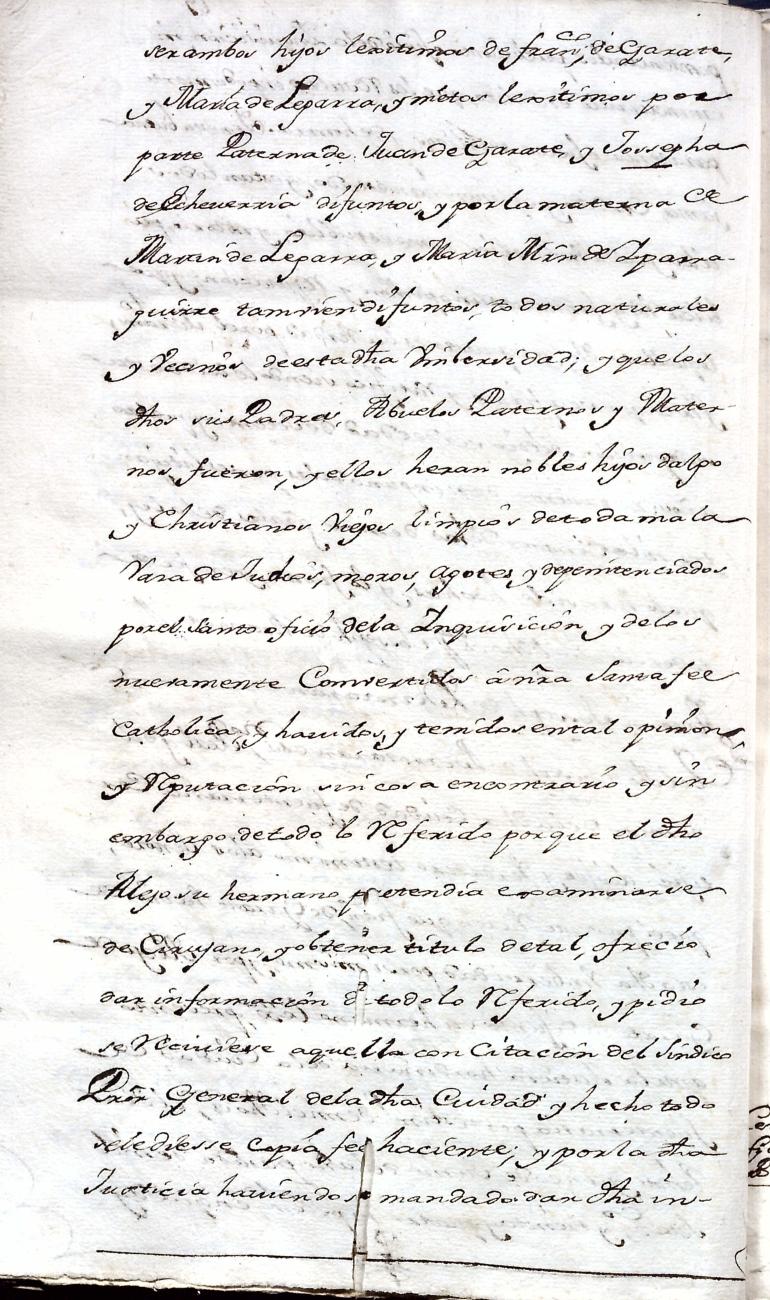 ser ambos hijos lexitimos de fran.co de Garate,
y Maria de Leparra, y nietos lexitimos por
parte Paterna de Juan de Garate, y Jossepha
de Echeverria difuntos, y por la materna de
Martin de Leparra, y Maria Mrn de Yparra-
guirre tamvien difuntos, todos naturales
y Vecinos de esta dha Vnibersidad; y que los
dhos sus Padres, Abuelos Paternos y Mater-
nos fueron, y ellos heran nobles hijos dalgo
y Christianos Viejos limpios de toda mala
Raza de Judios, moros, Agotes, y de penitenciados
por el Santo oficio de la Inquisicion y de los
nuevamente Convertidos à nrã Santa fee
Catholica, y havidos, y tenidos en tal opinion,
y Reputacion sin cosa en contrario y sin
embargo de todo lo Referido porque el dho
Alejo su hermano pretendia examinarse
de Cirujano, y obtener titulo de tal, ofrecio
dar informacion de todo lo Referido, y pidio
se Reciviese aquella con Citacion del Sindico
Prõr General de la dha Ciudad y hecho todo
se le diesse copia fee haciente; y por la dha
Justicia haviendose mandado dar dha in-